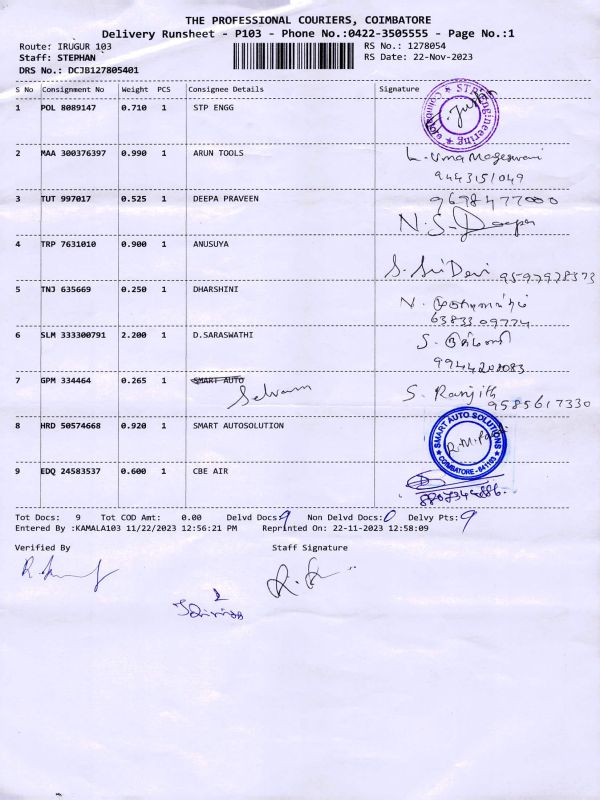 THE PROFESSIONAL COURIERS, COIMBATORE
Delivery Runsheet - P103 - Phone No.:0422-3505555 - Page No.:1
Route: IRUGUR 103
RS No.: 1278054
Staff: STEPHAN
RS Date: 22-Nov-2023
DRS No.: DCJB127805401
S No Consignment No Weight PCS Consignee Details Signature
1 POL 8089147 0.710 1 STP ENGG
STP Engineering
2 MAA 300376397 0.990 1 ARUN TOOLS L. Uma Mageswari
9443151049
3 TUT 997017 0.525 1 DEEPA PRAVEEN 9698477000
N.S. Deepa
4 TRP 7631010 0.900 1 ANUSUYA
S. Sri Devi 9597978373
5 TNJ 635669 0.250 1 DHARSHINI N.
63833 09774
6 SLM 333300791 2.200 1 D.SARASWATHI S.
7 GPM 334464 0.265 1 SMART AUTO
Selvam
S. Ranjith
9585617330
8 HRD 50574668 0.920 1 SMART AUTOSOLUTION
SMART AUTO SOLUTIONS
COIMBATORE - 641103
9 EDQ 24583537 0.600 1 CBE AIR
Tot Docs: 9 Tot COD Amt: 0.00 Delvd Docs: 9 Non Delvd Docs: 0 Delvy Pts: 9
Entered By :KAMALA103 11/22/2023 12:56:21 PM Reprinted On: 22-11-2023 12:58:09
Verified By
Staff Signature